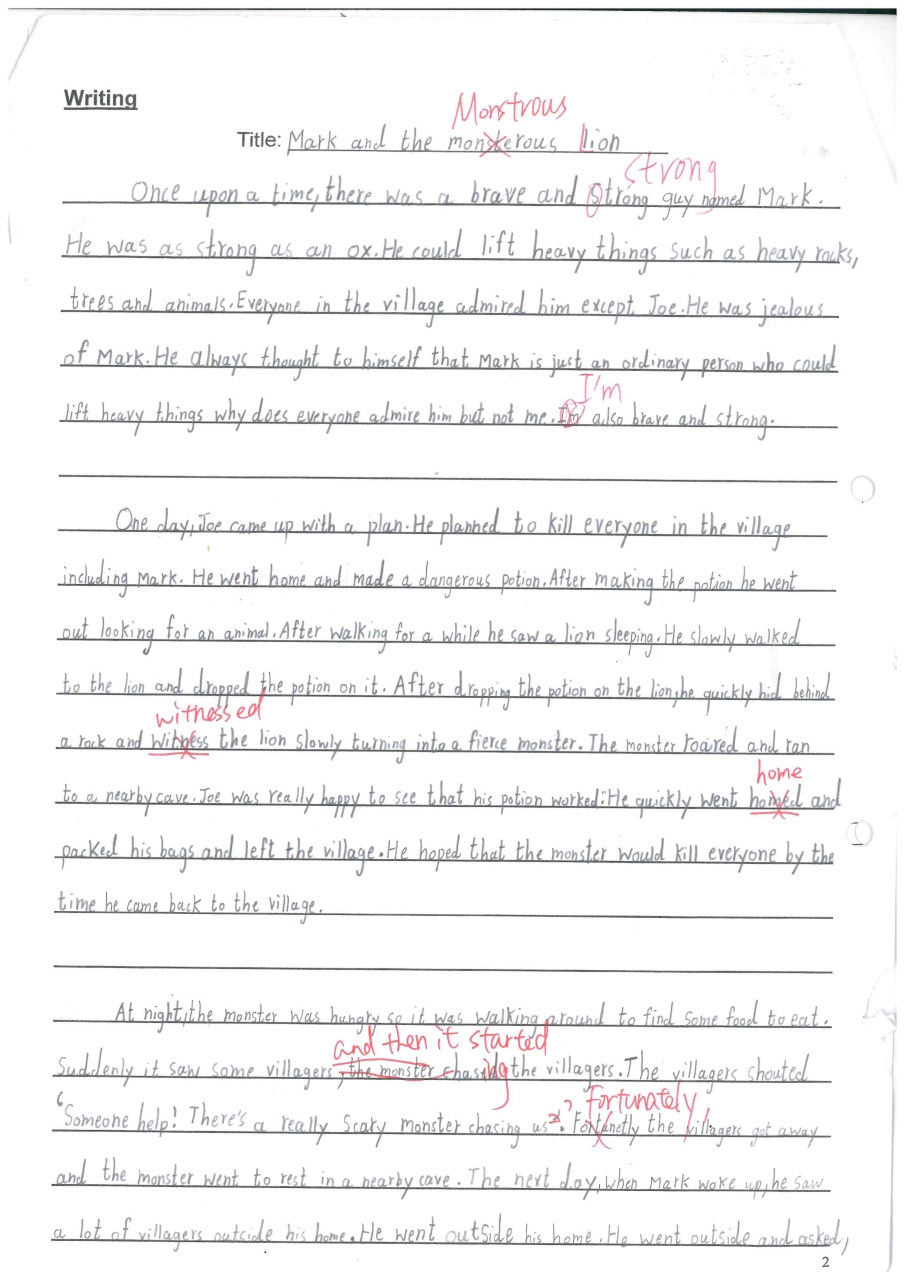 Writing
Monstrous
Title: Mark and the monsterous Lion
strong
Once upon a time, there was a brave and Strong guy named Mark.
He was as strong as an ox. He could lift heavy things such as heavy rocks,
trees and animals. Everyone in the village admired him except Joe. He was jealous
of Mark. He always thought to himself that Mark is just an ordinary person who could
I'm
lift heavy things why does everyone admire him but not me. Im also brave and strong.
One day, Joe came up with a plan. He planned to kill everyone in the village
including Mark. He went home and made a dangerous potion. After making the potion he went
out looking for an animal. After walking for a while he saw a lion sleeping. He slowly walked
to the lion and dropped the potion on it. After dropping the potion on the lion, he quickly hid behind
witnessed
a rock and witness the lion slowly turning into a fierce monster. The monster roared and ran
home
to a nearby cave. Joe was really happy to see that his potion worked. He quickly went homed and
packed his bags and left the village. He hoped that the monster would kill everyone by the
time he came back to the village.
At night, the monster was hungry so it was walking around to find some food to eat.
and then it started
Suddenly it saw some villagers, the monster chasing the villagers. The villagers shouted
Fortunately
"Someone help! There's a really scary monster chasing us". the villagers got away
and the monster went to rest in a nearby cave. The next day, when Mark woke up, he saw
a lot of villagers outside his home. He went outside his home. He went outside and asked,
2